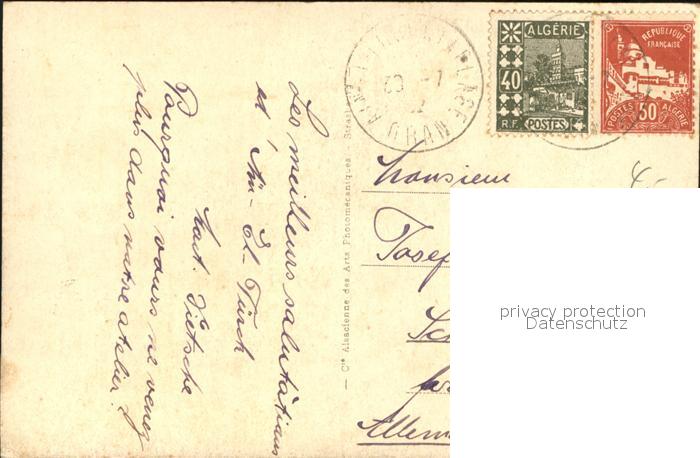 ALGÉRIE
40
R.F. POSTES
RÉPUBLIQUE
FRANÇAISE
50
POSTES ALGÉRIE
ORAN
Les meilleurs salutations
Türck
Pourquoi vours ne veneg
plus dans notre atelier?
— Cie Alsacienne des Arts Photomécaniques, Strasb
Monsieur
Josef
Allem
privacy protection
Datenschutz